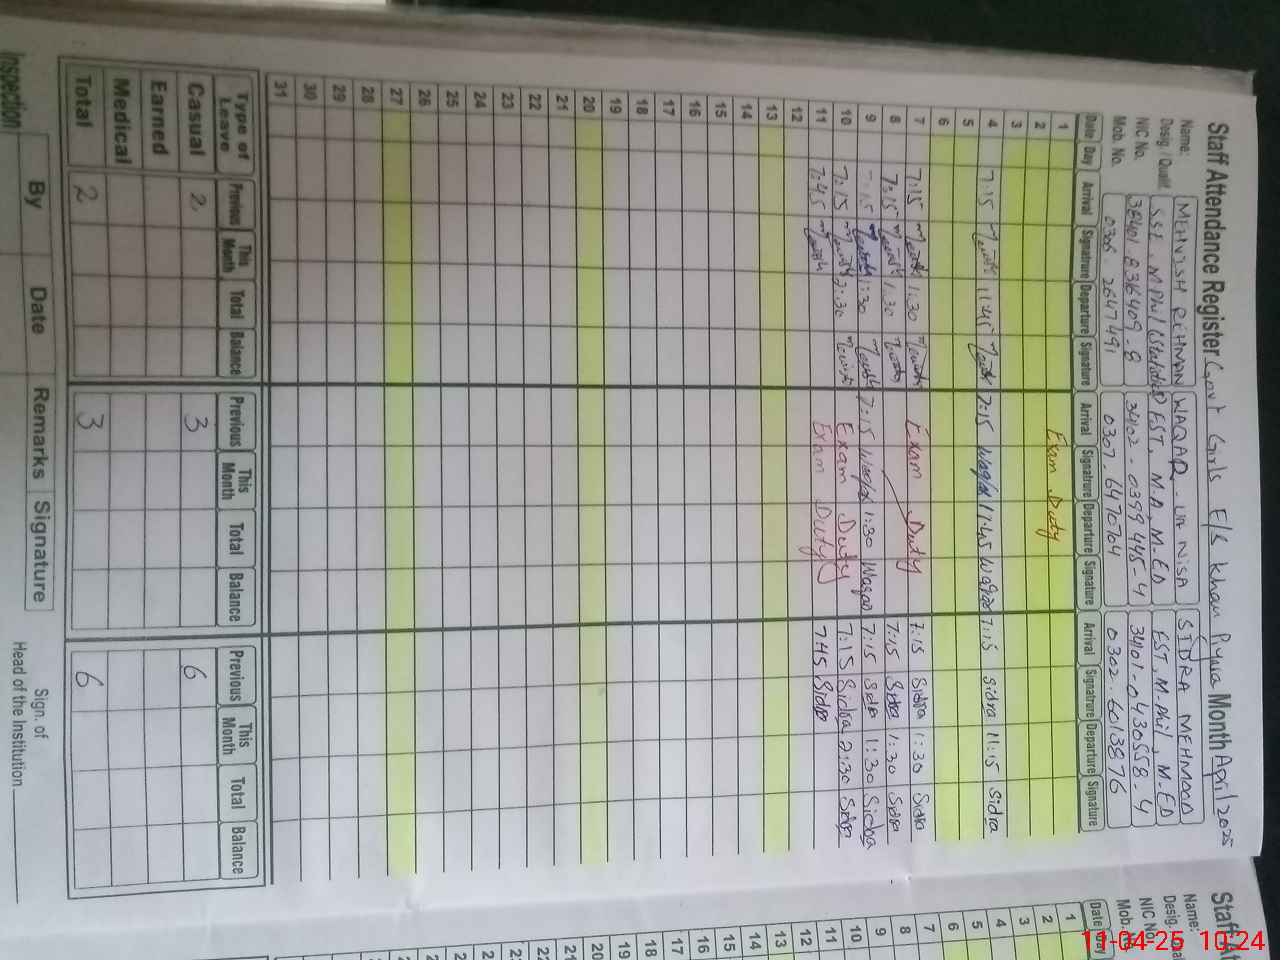 Staff Attendance Register Govt Girls E/S Khan Pyara Month April 2025
Name: MEHVISH REHMAN WAQAR-un-NISA SIDRA MEHMOOD
Desig. / Qualif. SST, M.Phil (Statistics) EST, M.A, M-ED EST, M.Phil, M-ED
NIC No.
Mob. No. 0307-6470704 0302-6013876
Date Day Arrival Signature Departure Signature Arrival Signatrure Departure Signature Arrival Signatrure Departure Signature
1 Exam Duty
2
3
4 7:15 11:45 7:15 Waqar 11:45 Waqar 7:15 Sidra 11:15 Sidra
5
6
7 7:15 1:30 Exam Duty 7:15 Sidra 1:30 Sidra
8 7:15 1:30 7:15 Sidra 1:30 Sidra
9 7:15 1:30 7:15 Waqar 1:30 Waqar 7:15 Sidra 1:30 Sidra
10 7:15 2:30 Exam Duty 7:15 Sidra 2:30 Sidra
11 7:45 Exam Duty 7:45 Sidra
12
13
14
15
16
17
18
19
20
21
22
23
24
25
26
27
28
29
30
31
Type of Leave Previous This Month Total Balance Previous This Month Total Balance Previous This Month Total Balance
Casual 2 3 6
Earned
Medical
Total 2 3 6
Inspection By Date Remarks Signature
Sign. of
Head of the Institution
Staff At
Name:
Desig.
NIC No.
Mob.
Date Day
1
2
3
4
5
6
7
8
9
10
11
12
13
14
15
16
17
18
19
20
11-04-25 10:24